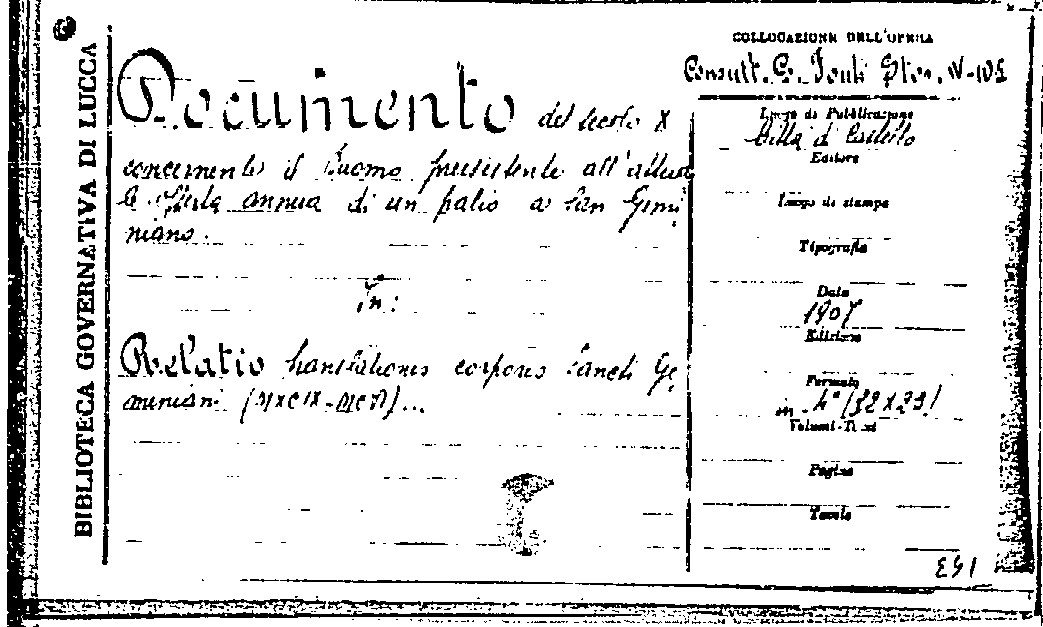 BIBLIOTECA GOVERNATIVA DI LUCCA
Documento del secolo X
concernente il Duomo preesistente all'attua
le offerta annua di un palio a San Gemi
niano.
In:
Relatio translationis corporis Sancti Ge
miniani (MXCIX-MCVI)...
COLLOCAZIONE DELL'OPERA
Consult. C. Fonti Stor. IV-102
Luogo di Pubblicazione
Città di Castello
Editore
Luogo di stampa
Tipografia
Data
1907
Edizione
Formato
in-4° (32x23)
Volumi-Tomi
Pagine
Tavole